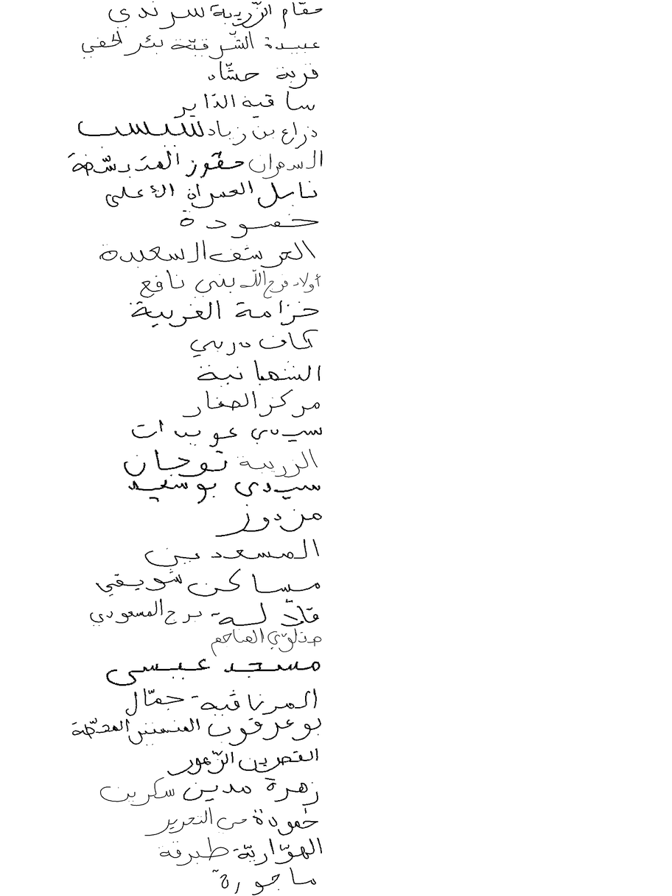 حمّام الزّريبة سرندي
عبيدة الشّرقيّة بئر الحفي
قرية حشّاد
ساقية الدّاير
ذراع بن زياد سيسب
السمران حفّوز المحطّة
نابل العمران الأعلى
خمودة
العريشف السعيدة
أولاد فرج الله بني نافع
خزامة الغربية
كاف دربي
الشهبانية
مركز الصفار
سيدي عويدات
الزريبة توجان
سيدي بوسعيد
مزدور
المسعدين
مساكن شويقي
قلالسة برج المسعودي
مسجد عيسى
المرناقية جمّال
بوعرقوب
القصرين الزّهور
زهرة مدين سكرين
خمودة حي التحرير
الهوّاريّة طبرقة
ماجورة